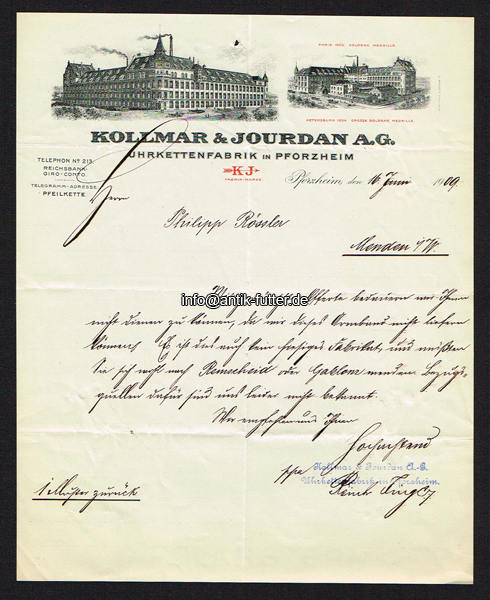 PARIS 1900 GOLDENE MEDAILLE.
PETERSBURG 1904 GROSSE GOLDENE MEDAILLE.
KOLLMAR & JOURDAN A.G.
UHRKETTENFABRIK IN PFORZHEIM
KJ
FABRIK-MARKE.
TELEPHON Nº 213.
REICHSBANK-
GIRO-CONTO.
TELEGRAMM-ADRESSE:
PFEILKETTE
Pforzheim, den 16. Juni 1909.
Herrn
Philipp Rössler
Menden i/W.
info@antik-futter.de
Offerte bedauern wir Ihnen
nicht dienen zu können, da wir dieses Armband nicht liefern
können. Es ist das auch kein hiesiges Fabrikat, und müßten
Sie sich nach Remscheid oder Gablonz wenden. Bezugs-
quellen dafür sind uns leider nicht bekannt.
Wir empfehlen uns Ihnen
Hochachtend
ppa Kollmar & Jourdan A.-G.
Uhrkettenfabrik in Pforzheim.
1 Muster zurück